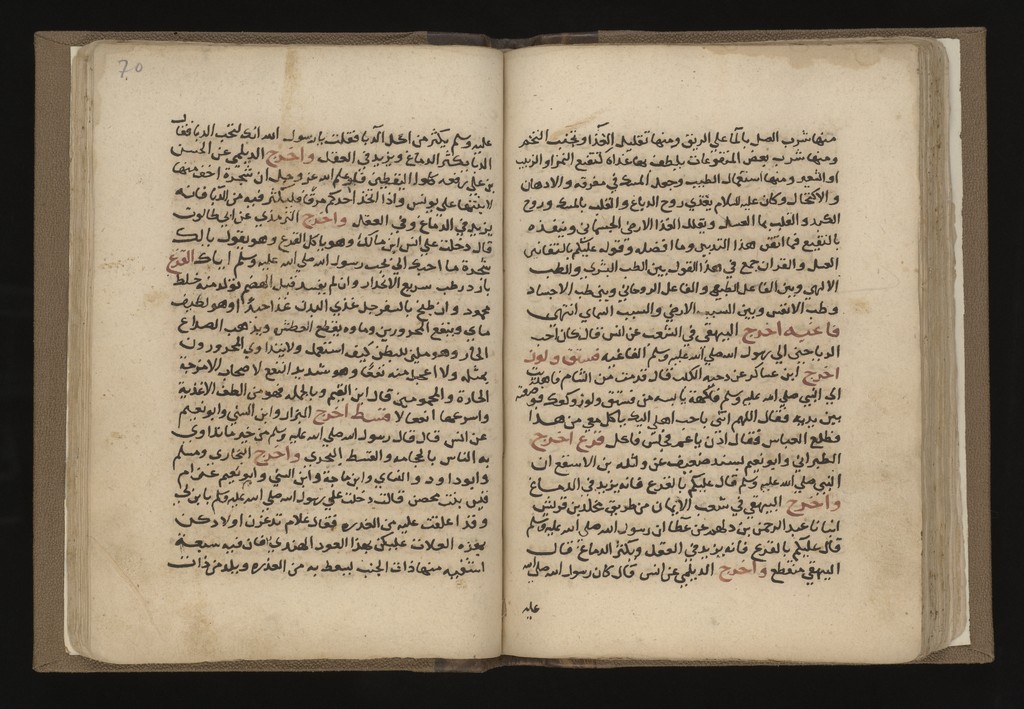 منها شرب العسل بالماء على الريق ومنها تقليل الغذا وتجنب التخم
ومنها شرب بعض المنقوعات يلطف بها غداه كنقيع التمر او الزبيب
او الشعير ومنها استعمال الطيب وجعل المسك في مفرقه والادهان
والاكتحال وكان عليه السلام يغذي روح الدماغ والقلب بالمسك وروح
الكبد والقلب بالعسل ويقلل الغذا الارضي الجسماني وينفذه
بالنقيع فما اتقن هذا التدبير وما افضله وقوله عليكم بالشفائين
العسل والقران جمع في هذا القول بين الطب البشري والطب
الالهي وبين الفاعل الطبيعي والفاعل الروحاني وبين طب الاجساد
وطب الانفس وبين السبب الارضي والسبب السمائي انتهى
فاغيه اخرج البيهقي في الشعب عن انس قال كان احب
الرياحين الي رسول الله صلى الله عليه وسلم الفاغيه فستق ولوز
اخرج ابن عساكر عن دحيه الكلبي قال قدمت من الشام فاهديت
الي النبي صلى الله عليه وسلم فاكهة يابسه من فستق ولوز وكعك فوضعته
بين يديه فقال اللهم ائتني باحب اهلي اليك ياكل معي من هذا
فطلع العباس فقال ادن يا عم فجلس فاكل قرع اخرج
الطبراني وابو نعيم بسند ضعيف عن واثله بن الاسقع ان
النبي صلى الله عليه وسلم قال عليكم بالقرع فانه يزيد في الدماغ
واخرج البيهقي في شعب الايمان من طريق مخلد بن قريش
انبانا عبد الرحمن بن دلهم عن عطا ان رسول الله صلى الله عليه وسلم
قال عليكم بالقرع فانه يزيد في العقل ويكثر الدماغ قال
البيهقي منقطع واخرج الديلمي عن انس قال كان رسول الله صلى الله
عليه
70
عليه وسلم يكثر من اكل الدبا فقلت يا رسول الله انك لتحب الدبا فقال
الدبا يكثر الدماغ ويزيد في العقل واخرج الديلمي عن الحسن
بن علي رفعه كلوا اليقطين فلو علم الله عز وجل ان شجرة اخف منها
لانبتها على يونس واذا اتخذ احدكم مرقا فليكثر فيه من الدبا فانه
يزيد في الدماغ وفي العقل واخرج الترمذي عن ابي طالوت
قال دخلت على انس ابن مالك وهو ياكل القرع وهو يقول يا لك
شجرة ما احبك الي لحب رسول الله صلى الله عليه وسلم اياك القرع
بارد رطب سريع الانحدار وان لم يفسد قبل الهضم تولد منه خلط
محمود وان طبخ بالسفرجل غذي البدن غذا جيدا وهو لطيف
مائي وينفع المحرورين وماوه يقطع العطش ويذهب الصداع
الحار وهو ملين للبطن كيف استعمل ولا يتداوي المحرورون
بمثله ولا اعجل منه نفعا وهو شديد النفع لاصحاب الامزجة
الحارة والمحمومين قال ابن القيم وبالجمله فهو من الطف الاغذية
واسرعها انفعالا قسط اخرج البزار وابن السني وابو نعيم
عن انس قال قال رسول الله صلى الله عليه وسلم من خير ما تداوي
به الناس بالحجامه والقسط البحري واخرج البخاري ومسلم
وابو داود والنساي وابن ماجة وابن السني وابو نعيم عن ام
قيس بنت محصن قالت دخلت على رسول الله صلى الله عليه وسلم بابن لي
وقد اعلقت عليه من العذره فقال علام تدغرن اولادكن
بهذه العلاق عليكن بهذا العود الهندي فان فيه سبعة
اشفيه منها ذات الجنب ليسعط به من العذره ويلد من ذات